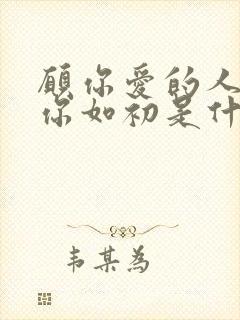 愿你爱的人
你如初是什
韦某为